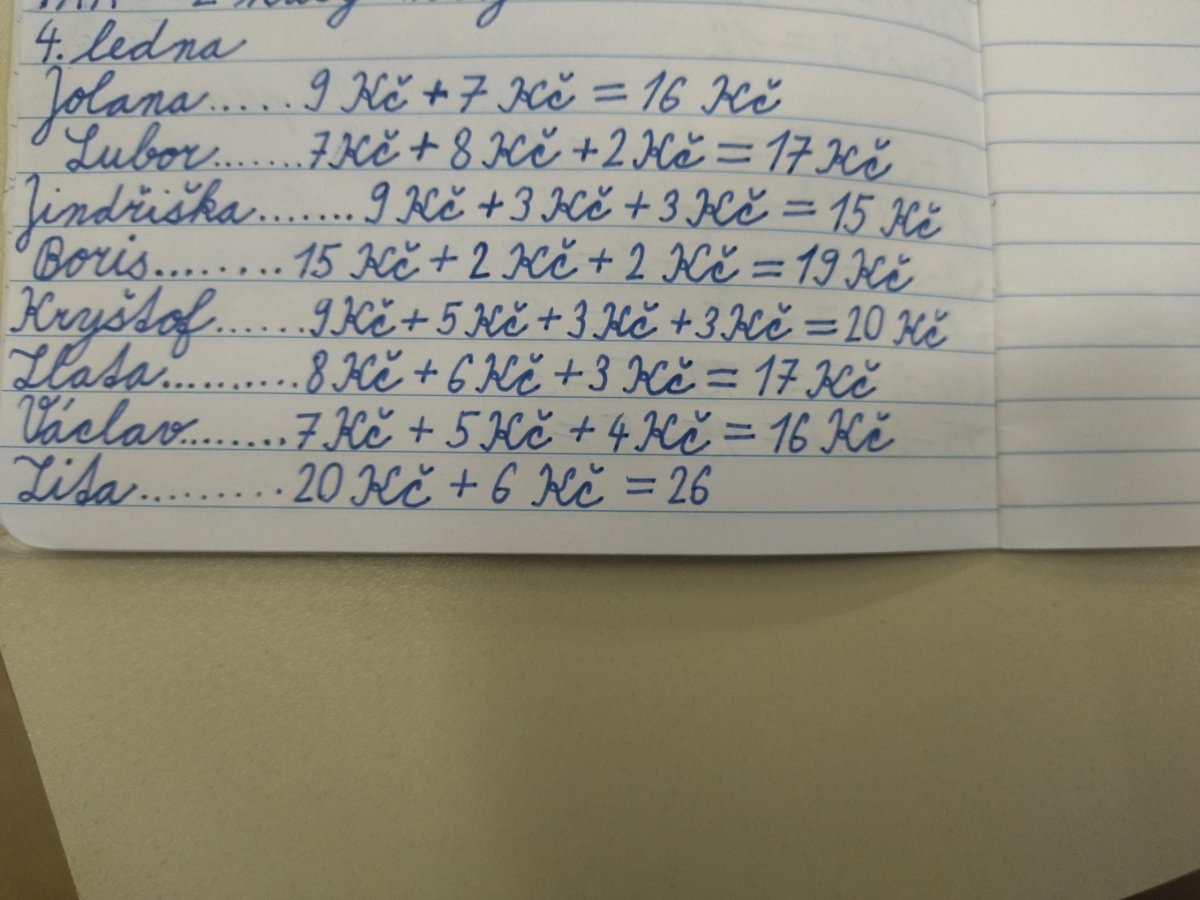 4. ledna
Jolana......9 Kč + 7 Kč = 16 Kč
Lubor.......7Kč + 8 Kč + 2 Kč = 17 Kč
Jindřiška.......9 Kč + 3 Kč + 3 Kč = 15 Kč
Boris.........15 Kč + 2 Kč + 2 Kč = 19 Kč
Kryštof......9Kč + 5 Kč + 3 Kč + 3 Kč = 20 Kč
Zlata..........8 Kč + 6 Kč + 3 Kč = 17 Kč
Václav........7 Kč + 5 Kč + 4 Kč = 16 Kč
Zita.........20 Kč + 6 Kč = 26